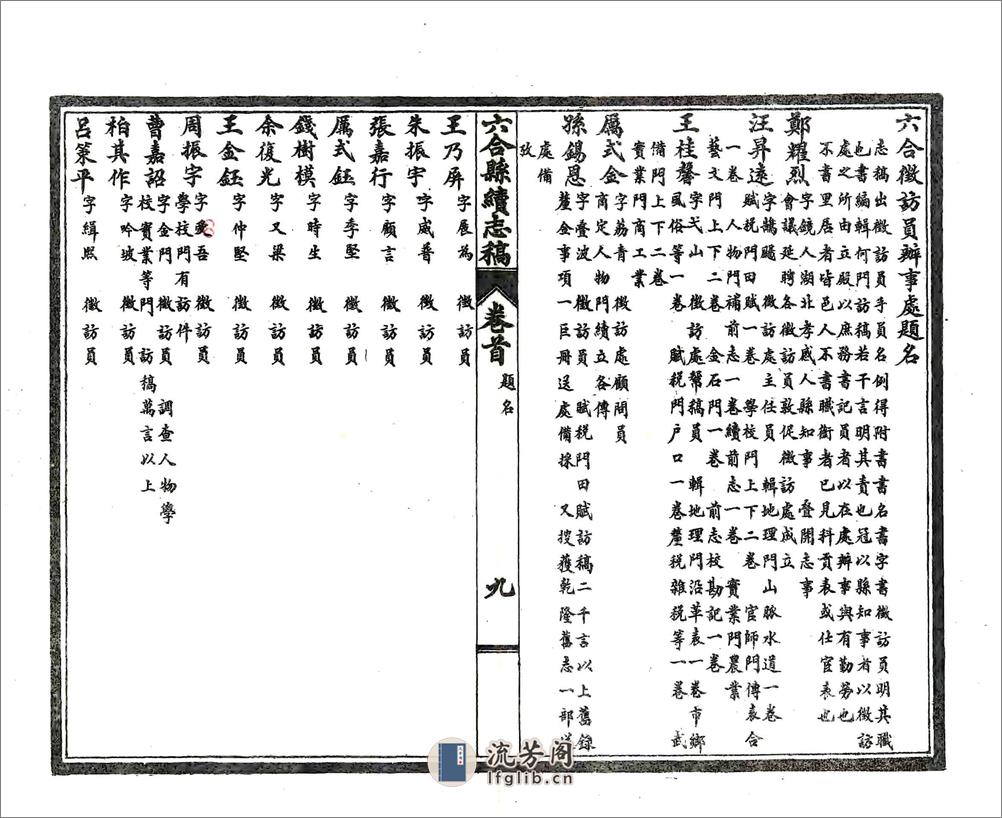 六合徵訪員辦事處題名
志稿出徵訪員手員名例得附書書名書字書徵訪員明其職
也書編輯何門訪稿若干言明其責也冠以縣知事者以徵訪
處之所由立殿以庶務書記員者以在處辦事與有勤勞也
不書里居者皆邑人不書職銜者已見科貢表或仕宦表也
鄭耀烈 字鏡人湖北孝感人縣知事 疊開志事
會議延聘各徵訪員敦促徵訪處成立
汪昇遠 字鵠颺 徵訪處主任員 輯地理門山脈水道一卷
賦稅門田賦一卷 學校門上下二卷 官師門傳表合
一卷 人物門補前志一卷續前志一卷 實業門農業
藝文門上下二卷 金石門一卷 前志校勘記一卷
王桂馨 字弋山 徵訪處幫稿員 輯地理門沿革表一卷市鄉
風俗等一卷 賦稅門戶口一卷釐稅雜稅等一卷 武
備門上下二卷
實業門商工業
厲式金 字荔青 徵訪處顧問員
商定人物門續立各傳
孫錫恩 字疊波 徵訪員 賦稅門田賦訪稿二千言以上舊錄
釐金事項一巨冊送處備採 又搜獲乾隆舊志一部送
處備
攷
六合縣續志稿 卷首 題名 九
王乃屏 字展為 徵訪員
朱振宇 字威普 徵訪員
張嘉行 字顧言 徵訪員
厲式鈺 字季堅 徵訪員
錢樹模 字時生 徵訪員
余復光 字又梁 徵訪員
王金鈺 字仲堅 徵訪員
周振字 字吾 徵訪員
學校門有訪件
曹嘉詔 字金門 徵訪員 調查人物學
校實業等門 訪稿萬言以上
柏其作 字吟坡 徵訪員
呂策平 字緝熙 徵訪員
流芳阁
lfglib.cn